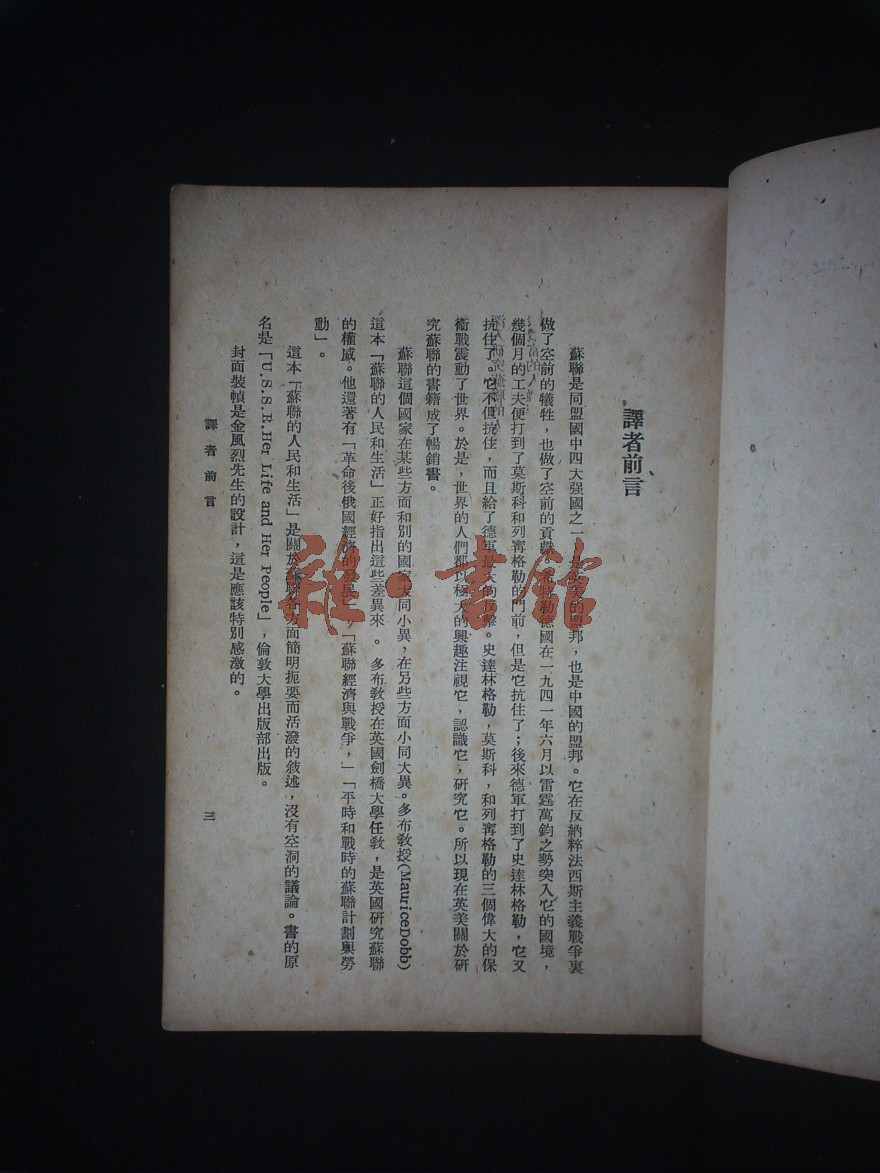 譯者前言
蘇聯是同盟國中四大强國之一，是英美的盟邦，也是中國的盟邦。它在反納粹法西斯主義戰爭裏
做了空前的犧牲，也做了空前的貢獻。希特勒德國在一九四一年六月以雷霆萬鈞之勢突入它的國境，
幾個月的工夫便打到了莫斯科和列寗格勒的門前，但是它抗住了；後來德軍打到了史達林格勒，它又
抗住了。它不但抗住，而且給了德軍最大的反擊。史達林格勒，莫斯科，和列寗格勒的三個偉大的保
衛戰震動了世界。於是，世界的人們都以極大的興趣注視它，認識它，研究它。所以現在英美關於研
究蘇聯的書籍成了暢銷書。
蘇聯這個國家在某些方面和別的國家大同小異，在另些方面小同大異。多布敎授(MauriceDobb)
這本「蘇聯的人民和生活」正好指出這些差異來。多布敎授在英國劍橋大學任敎，是英國研究蘇聯
的權威。他還著有「革命後俄國經濟的發展」，「蘇聯經濟與戰爭，」「平時和戰時的蘇聯計劃與勞
動」。
這本「蘇聯的人民和生活」是關於蘇聯各方面簡明扼要而活潑的敍述，沒有空洞的議論。書的原
名是「U.S.S.R.Her Life and Her People」，倫敦大學出版部出版。
封面裝幀是金風烈先生的設計，這是應該特別感激的。
譯者前言
三
雜·書館